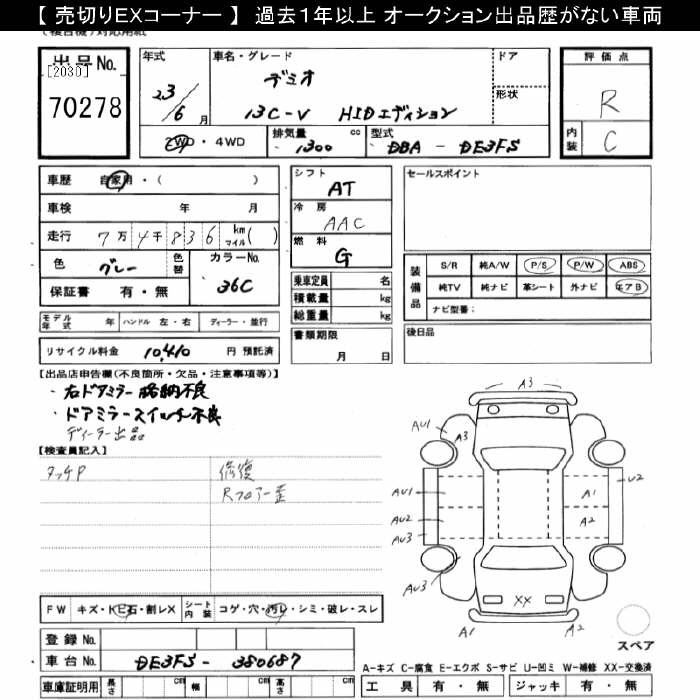 【 売切りEXコーナー 】 過去1年以上 オークション出品歴がない車両
出品 No.
[2030]
70278
年式
23/6 月
車名・グレード
デミオ
13C-V HIDエディション
ドア
形状
2WD・4WD
排気量
1300 cc
型式
DBA - DE3FS
評価点
R
内装
C
車歴 自家用・( )
車検 年 月
走行 7万 4千 836 km マイル ( )
色 グレー 色替
カラーNo. 36C
保証書 有・無
シフト
AT
冷房
AAC
燃料
G
乗車定員 名
積載量 kg
総重量 kg
書類期限
月 日
セールスポイント
装備品
S/R 純A/W P/S P/W ABS
純TV 純ナビ 革シート 外ナビ エアB
ナビ型番:
後日品
モデル年式 年 ハンドル 左・右 ディーラー・並行
リサイクル料金 10,410 円 預託済
【出品店申告欄(不良箇所・欠品・注意事項等)】
・右ドアミラー格納不良
・ドアミラースイッチ不良
ディーラー出品
【検査員記入】
タッチP
修復
Rフロアー歪
FW キズ・トビ石・割レX シート内装 コゲ・穴・汚レ・シミ・破レ・スレ
登録 No.
車台 No. DE3FS - 380687
車庫証明用 長さ cm 幅 cm 高さ cm
A3
AU1
A3
AU1
AU2
AU3
AU3
A1
A2
U2
XX
A1
A2
スペア
A-キズ C-腐食 E-エクボ S-サビ U-凹ミ W-補修 XX-交換済
工具 有・無 ジャッキ 有・無